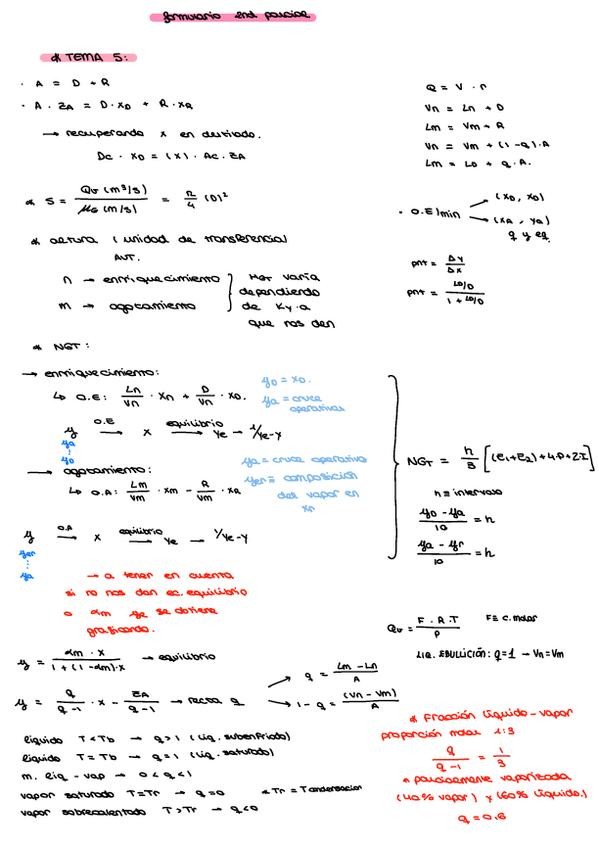 formulario 2nd parcial
* TEMA 5:
· A = D + R
· A · ZA = D · XD + R · XR
→ recuperando x en destilado.
Dc · XD = (X) · Ac · ZA
* S = Qv (m³/s) / μG (m/s) = π/4 (D)²
* altura (unidad de transferencia)
AUT.
n → enriquecimiento
m → agotamiento
HGT varía
dependiendo
de Ky·a
que nos den
Q = V · r
Vn = Ln + D
Lm = Vm + R
Vn = Vm + (1-q)·A
Lm = LD + q·A.
· O.E/min
(XD, XD)
(XA, YA)
q y eq.
pnt = Δy / Δx
pnt = LD/D / 1 + LD/D
* NGT:
→ enriquecimiento:
↳ O.E: Ln/Vn · Xn + D/Vn · XD.
yD = XD.
ya = cruce
operativas
y O.E → x equilibrio → Ye → 1/Ye-Y
ya
⋮
yD
→ agotamiento:
↳ O.A: Lm/Vm · Xm - R/Vm · XR
ya = cruce operativa
yer = composición
del vapor en
xr
y O.A → x equilibrio → Ye → 1/Ye-Y
yer
⋮
ya
NGT = h/3 [(E1+E2)+4·P+2·I]
h = intervalo
yD - ya / 10 = h
ya - yr / 10 = h
→ a tener en cuenta
si no nos dan ec. equilibrio
o αm ye se obtiene
graficando.
Qv = F·R·T / P
F = c. molar
LIQ. EBULLICIÓN: q=1 → Vn=Vm
y = αm · x / 1 + (1-αm)·x → equilibrio
y = q/q-1 · x - ZA/q-1 → recta q
q = Lm - Ln / A
1 - q = (Vn - Vm) / A
líquido T < Tb → q>1 (líq. subenfriado)
líquido T = Tb → q=1 (líq. saturado)
m. líq - vap → 0<q<1
vapor saturado T=Tr → q=0 * Tr = Tcondensación
vapor sobrecalentado T>Tr → q<0
* Fracción líquido-vapor
proporción molar 1:3
q / q-1 = 1/3
* parcialmente vaporizada
(40% vapor) y (60% líquido.)
q = 0.6